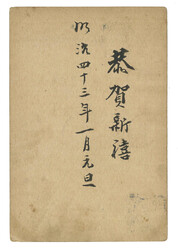 恭賀新禧
明治四十三年一月元旦